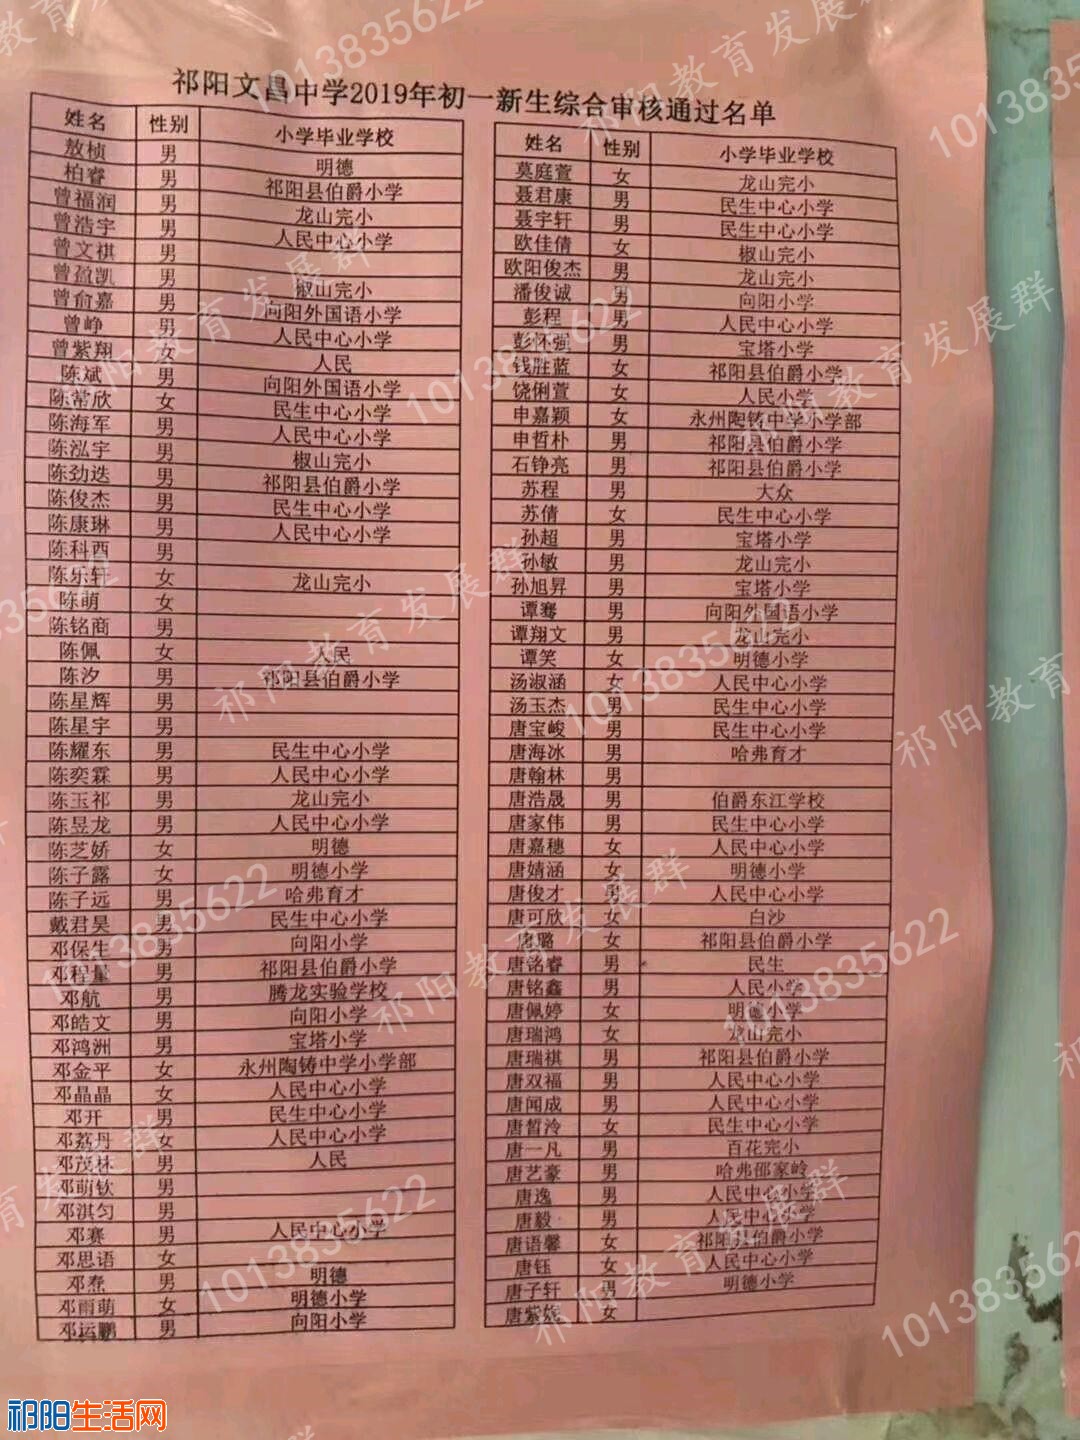 祁阳文昌中学2019年初一新生综合审核通过名单
姓名 性别 小学毕业学校
敖桢 男 明德
柏睿 男 祁阳县伯爵小学
曾福润 男 龙山完小
曾浩宇 男 人民中心小学
曾文祺 男
曾盈凯 男 椒山完小
曾俞嘉 男 向阳外国语小学
曾峥 男 人民中心小学
曾紫翔 女 人民
陈斌 男 向阳外国语小学
陈常欣 女 民生中心小学
陈海军 男 人民中心小学
陈泓宇 男 椒山完小
陈劲迭 男 祁阳县伯爵小学
陈俊杰 男 民生中心小学
陈康琳 男 人民中心小学
陈科西 男
陈乐轩 女 龙山完小
陈萌 女
陈铭商 男
陈佩 女 人民
陈汐 男 祁阳县伯爵小学
陈星辉 男
陈星宇 男
陈耀东 男 民生中心小学
陈奕霖 男 人民中心小学
陈玉祁 男 龙山完小
陈昱龙 男 人民中心小学
陈芝娇 女 明德
陈子露 女 明德小学
陈子远 男 哈弗育才
戴君昊 男 民生中心小学
邓保生 男 向阳小学
邓程量 男 祁阳县伯爵小学
邓航 男 腾龙实验学校
邓皓文 男 向阳小学
邓鸿洲 男 宝塔小学
邓金平 女 永州陶铸中学小学部
邓晶晶 女 人民中心小学
邓开 男 民生中心小学
邓荔丹 女 人民中心小学
邓茂林 男 人民
邓萌钦 男
邓淇匀 男
邓赛 男 人民中心小学
邓思语 女
邓焘 男 明德
邓雨萌 女 明德小学
邓运鹏 男 向阳小学
姓名 性别 小学毕业学校
莫庭萱 女 龙山完小
聂君康 男 民生中心小学
聂宇轩 男 民生中心小学
欧佳倩 女 椒山完小
欧阳俊杰 男 龙山完小
潘俊诚 男 向阳小学
彭程 男 人民中心小学
彭怀强 男 宝塔小学
钱胜蓝 女 祁阳县伯爵小学
饶俐萱 女 人民小学
申嘉颖 女 永州陶铸中学小学部
申哲朴 男 祁阳县伯爵小学
石铮亮 男 祁阳县伯爵小学
苏程 男 大众
苏倩 女 民生中心小学
孙超 男 宝塔小学
孙敏 男 龙山完小
孙旭昇 男 宝塔小学
谭骞 男 向阳外国语小学
谭翔文 男 龙山完小
谭笑 女 明德小学
汤淑涵 女 人民中心小学
汤玉杰 男 民生中心小学
唐宝峻 男 民生中心小学
唐海冰 男 哈弗育才
唐翰林 男
唐浩晟 男 伯爵东江学校
唐家伟 男 民生中心小学
唐嘉穗 女 人民中心小学
唐婧涵 女 明德小学
唐俊才 男 人民中心小学
唐可欣 女 白沙
唐璐 女 祁阳县伯爵小学
唐铭睿 男 民生
唐铭鑫 男 人民小学
唐佩婷 女 明德小学
唐瑞鸿 女 龙山完小
唐瑞祺 男 祁阳县伯爵小学
唐双福 男 人民中心小学
唐闻成 男 人民中心小学
唐皙泠 女 民生中心小学
唐一凡 男 百花完小
唐艺豪 男 哈弗邵家岭
唐逸 男 人民中心小学
唐毅 男 人民中心小学
唐语馨 女 祁阳县伯爵小学
唐钰 女 人民中心小学
唐子轩 男 明德小学
唐紫妮 女
祁阳教育发展群
1013835622
祁阳生活网